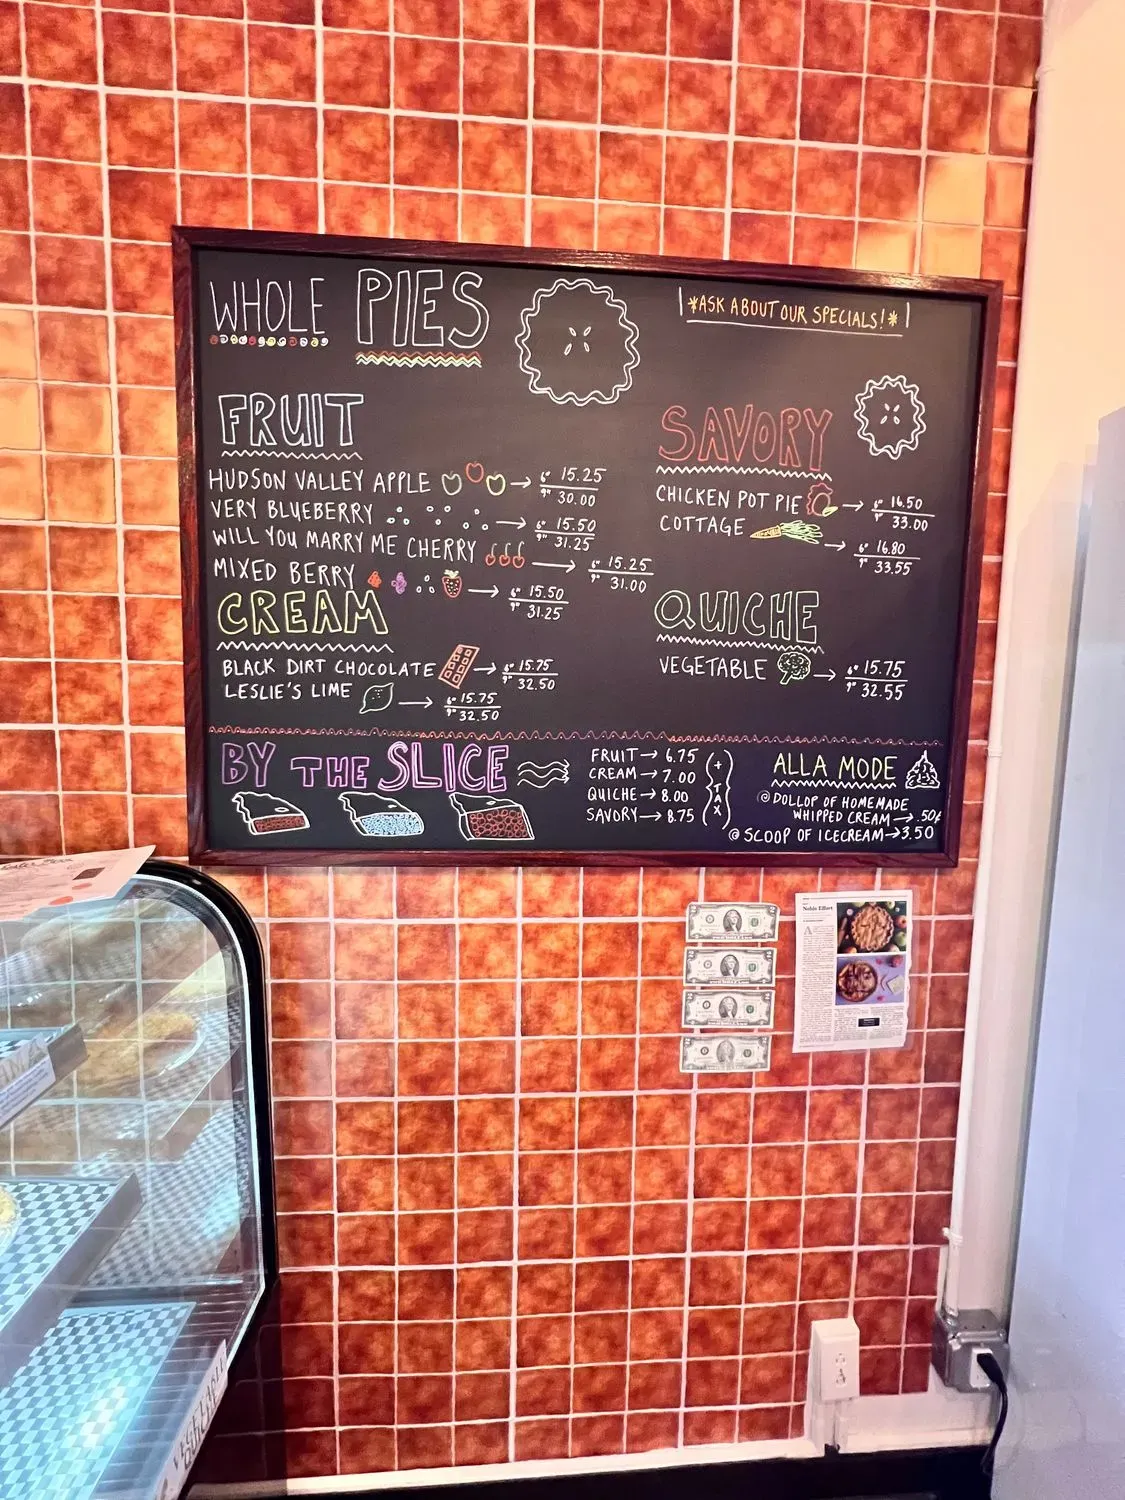 WHOLE PIES
*ASK ABOUT OUR SPECIALS!*
FRUIT
HUDSON VALLEY APPLE → 6" 15.25
9" 30.00
VERY BLUEBERRY → 6" 15.50
9" 31.25
WILL YOU MARRY ME CHERRY → 6" 15.25
9" 31.00
MIXED BERRY → 6" 15.50
9" 31.25
CREAM
BLACK DIRT CHOCOLATE → 6" 15.75
9" 32.50
LESLIE'S LIME → 6" 15.75
9" 32.50
SAVORY
CHICKEN POT PIE → 6" 16.50
9" 33.00
COTTAGE → 6" 16.80
9" 33.55
QUICHE
VEGETABLE → 6" 15.75
9" 32.55
BY THE SLICE
FRUIT → 6.75
CREAM → 7.00
QUICHE → 8.00
SAVORY → 8.75
(+ TAX)
ALLA MODE
@ DOLLOP OF HOMEMADE
WHIPPED CREAM → .50¢
@ SCOOP OF ICECREAM → 3.50
Noble Effort